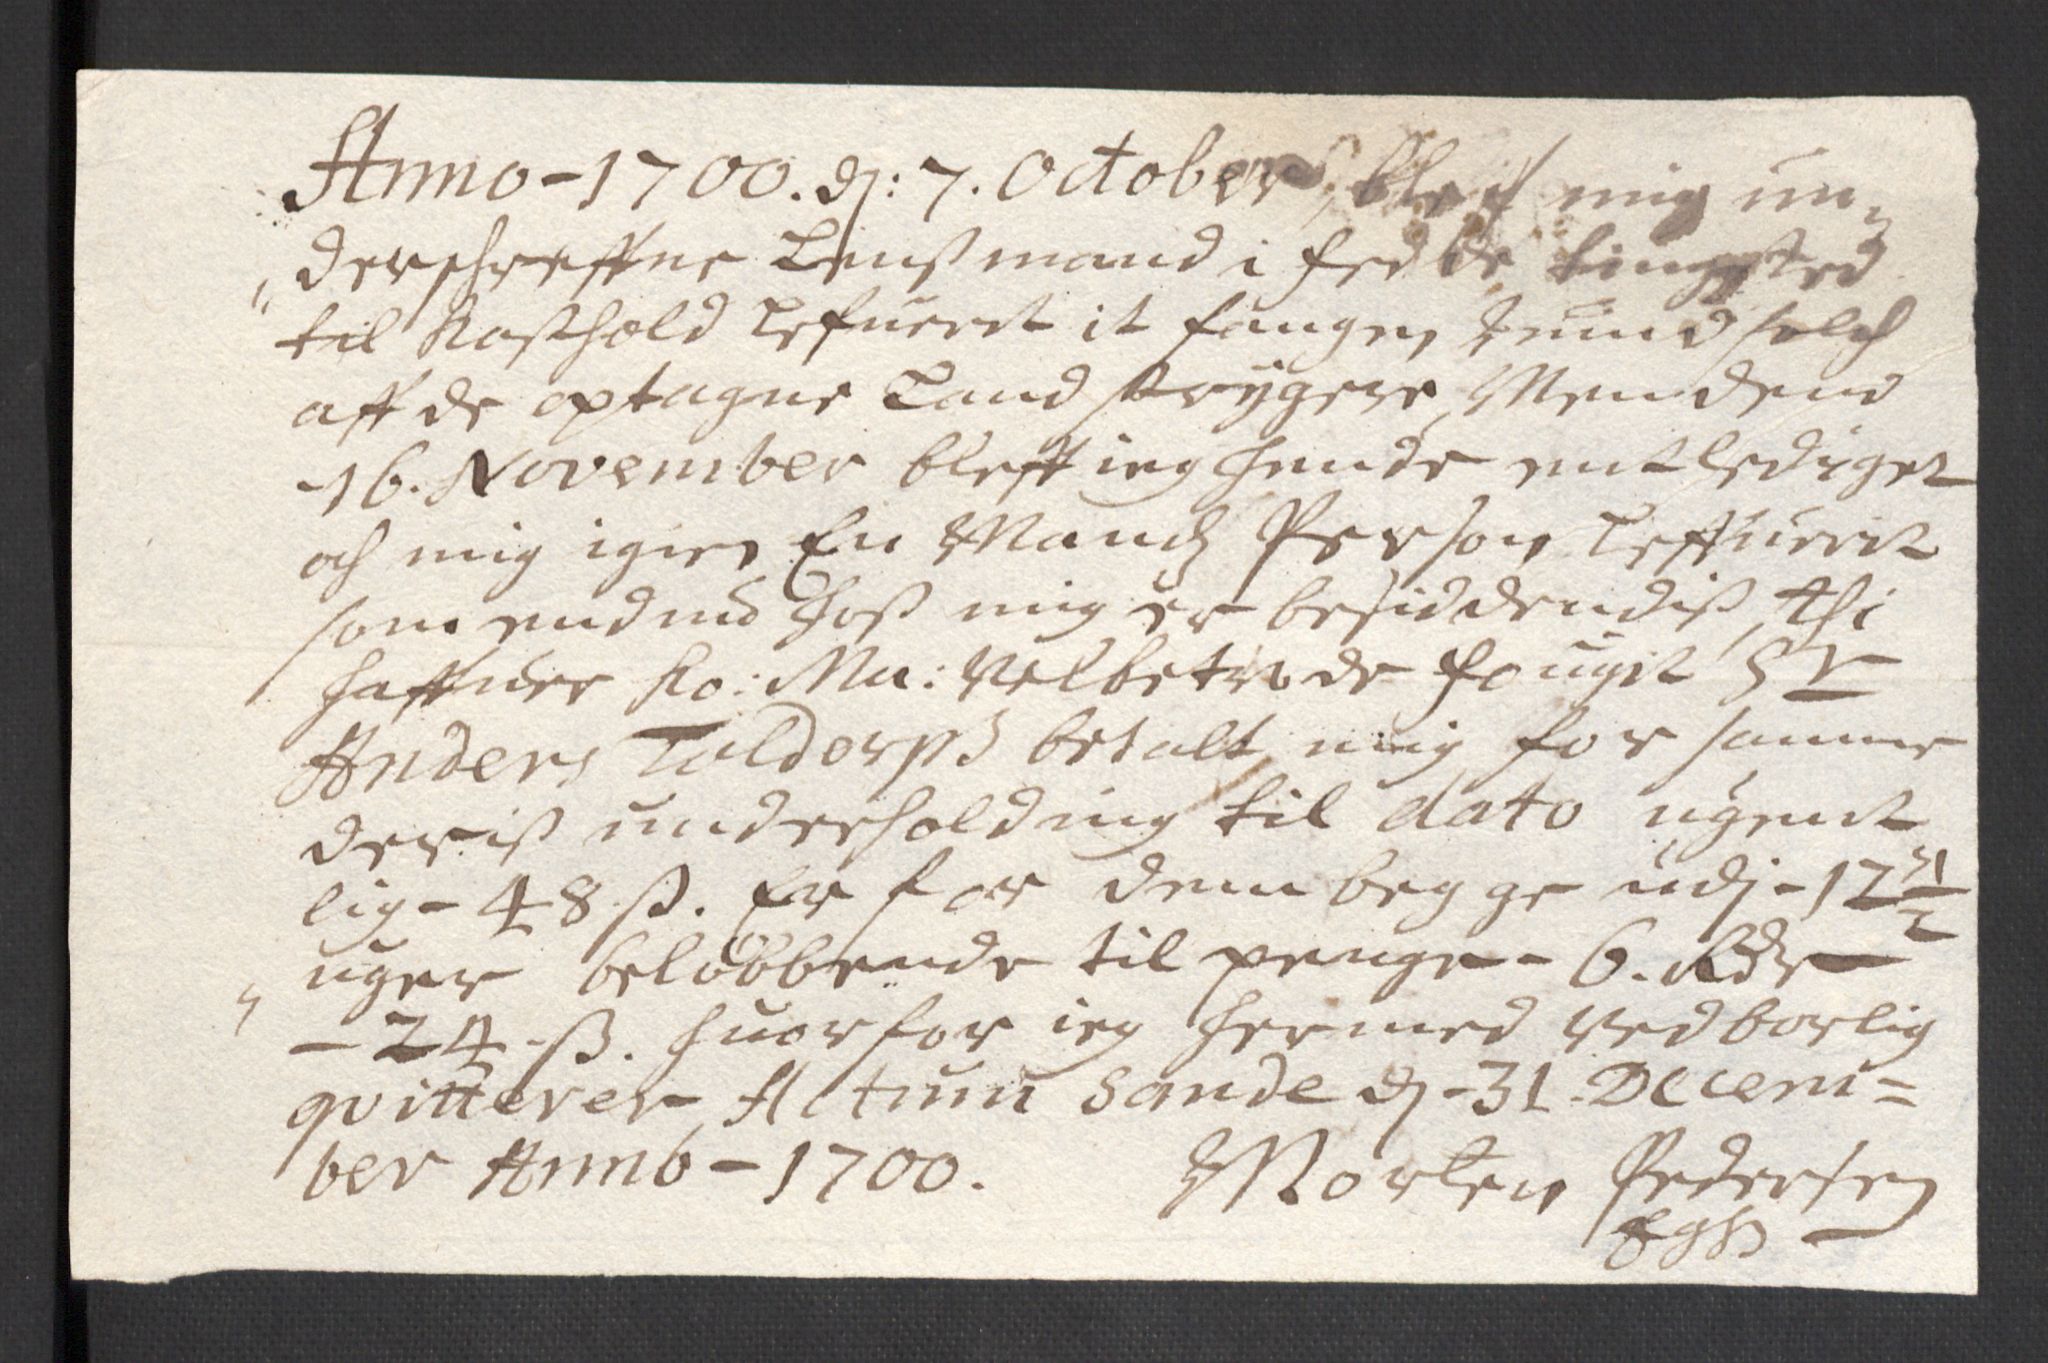 Anno - 1700. dj: 7. October, bleff mig un„
„derschreffne Lensmand i fedde tingsted
til Kosthold Lefueret it fangen quind folch
aff de optagne Land strÿgere, Men dend
16. November bleff ieg hende entlediget
och mig igien En Mands Person Leffueret
som endnu hoß mig er besiddendiß, thi
haffuer Ko: Ma: Velbetrode fougit Sr
Anders Toldorph betalt mig for samme
deriß underholding til dato ugent
lig - 48 ß. Er for dem begge udj - 12 1/2
uger beløbbende til penge - 6. Rdr
- 24 - ß. huorfor ieg hermed vedborlig
qvitterer, Actum Sande dj - 31. Decem=
ber Anno - 1700. Morten Pedersen
Eghd